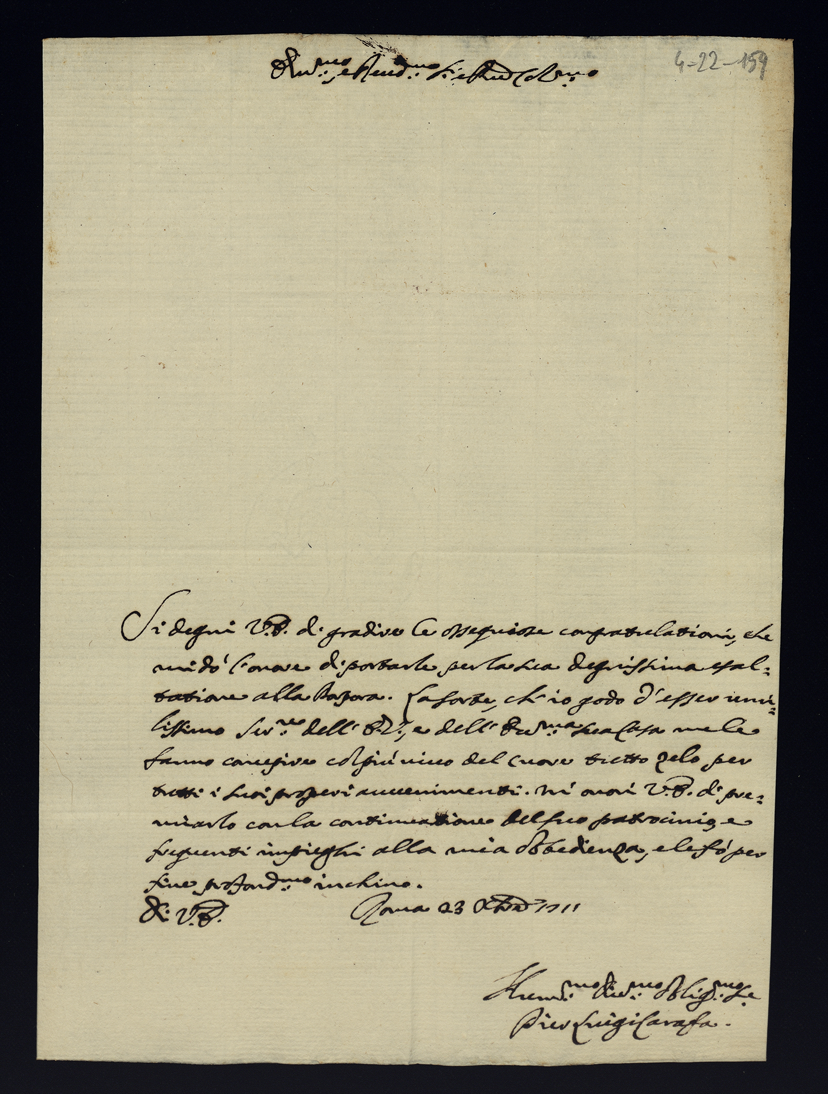 Em.mo e Reud.mo S.re P.ron Col.mo
4-22-159
Si degni V.E. di gradire le ossequiose congratulationi, che
mi dò l'onore di portarle per la sua degnissima esal=
tatione alla Porpora. La sorte, ch'io godo d'esser umi=
lissimo Ser.re dell'E.V., e dell'Em.ma sua Casa me le
fanno concepire col più vivo del cuore tutto zelo per
tutti i suoi prosperi auuenimenti. mi onori V.E. di pre=
miarlo con la continuatione del suo patrocinio, e
frequenti impieghi alla mia obbedienza, e le fò per
fine profond.mo inchino.
Di V.E. Roma 23 Xbre 1711
Hum.mo Diu.mo Oblig.mo Se
Pier Luigi Carafa.